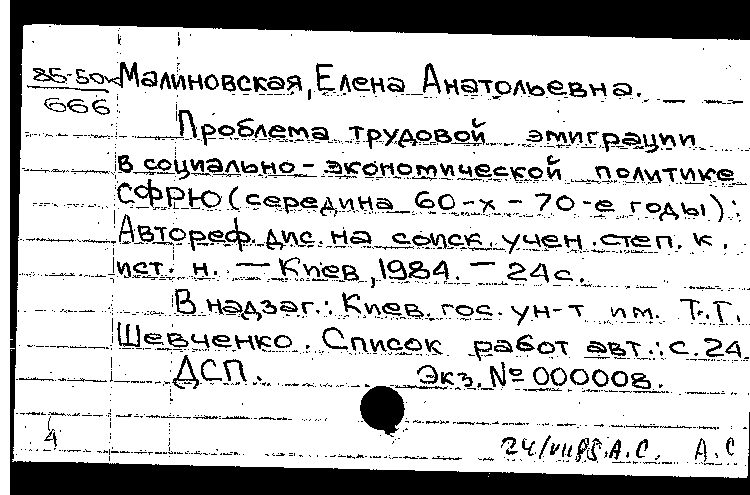 86-50к Малиновская, Елена Анатольевна.
666
Проблема трудовой эмиграции
в социально-экономической политике
СФРЮ (середина 60-х - 70-е годы):
Автореф. дис. на соиск. учен. степ. к.
ист. н. — Киев, 1984. — 24с.
В надзаг.: Киев. гос. ун-т им. Т.Г.
Шевченко. Список работ авт.: с. 24
ДСП. Экз. № 000008.
4
24/VII85. А.С. А.С